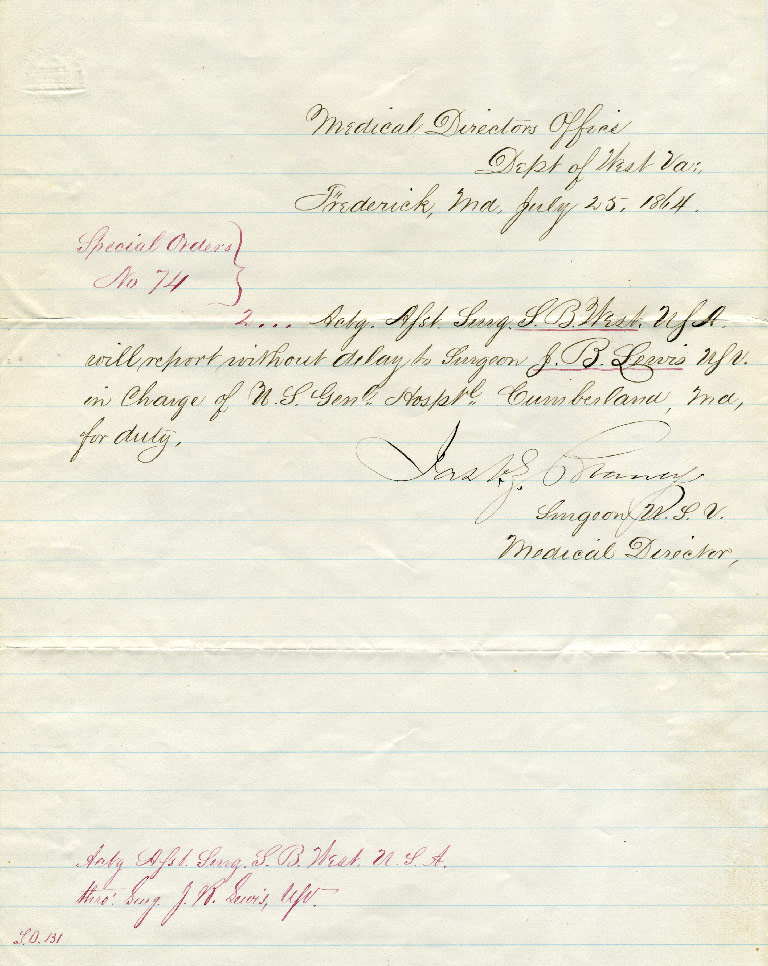 Medical Directors Office
Dept of West Va:,
Frederick, Md, July 25, 1864.
Special Orders
No 74
2... Actg. Asst. Surg. S. B. West, U S A.
will report without delay to Surgeon J. B. Lewis U S V.
in Charge of U. S. Genl. Hosptl. Cumberland, Md,
for duty,
Surgeon U. S. V.
Medical Director,
Actg Asst. Surg. S. B. West. U. S. A.
thro: Surg. J. B. Lewis, U S V.
S.O. 131